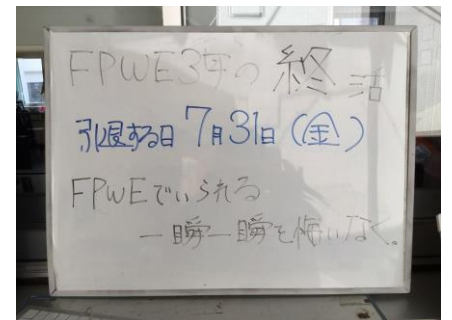 FPWE3年の 終活
引退する日 7月31日(金)
FPWEでいられる
一瞬一瞬を悔いなく。